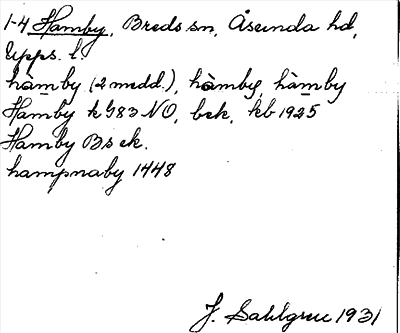 1-4 Hamby, Breds sn, Åsunda hd,
Upps. l.
hàmby (2 medd.), hàmby, hàmby
Hamby k G83 NO, bek, kb 1925
Hamby Bs ek.
hampnaby 1448
J. Sahlgren 1931